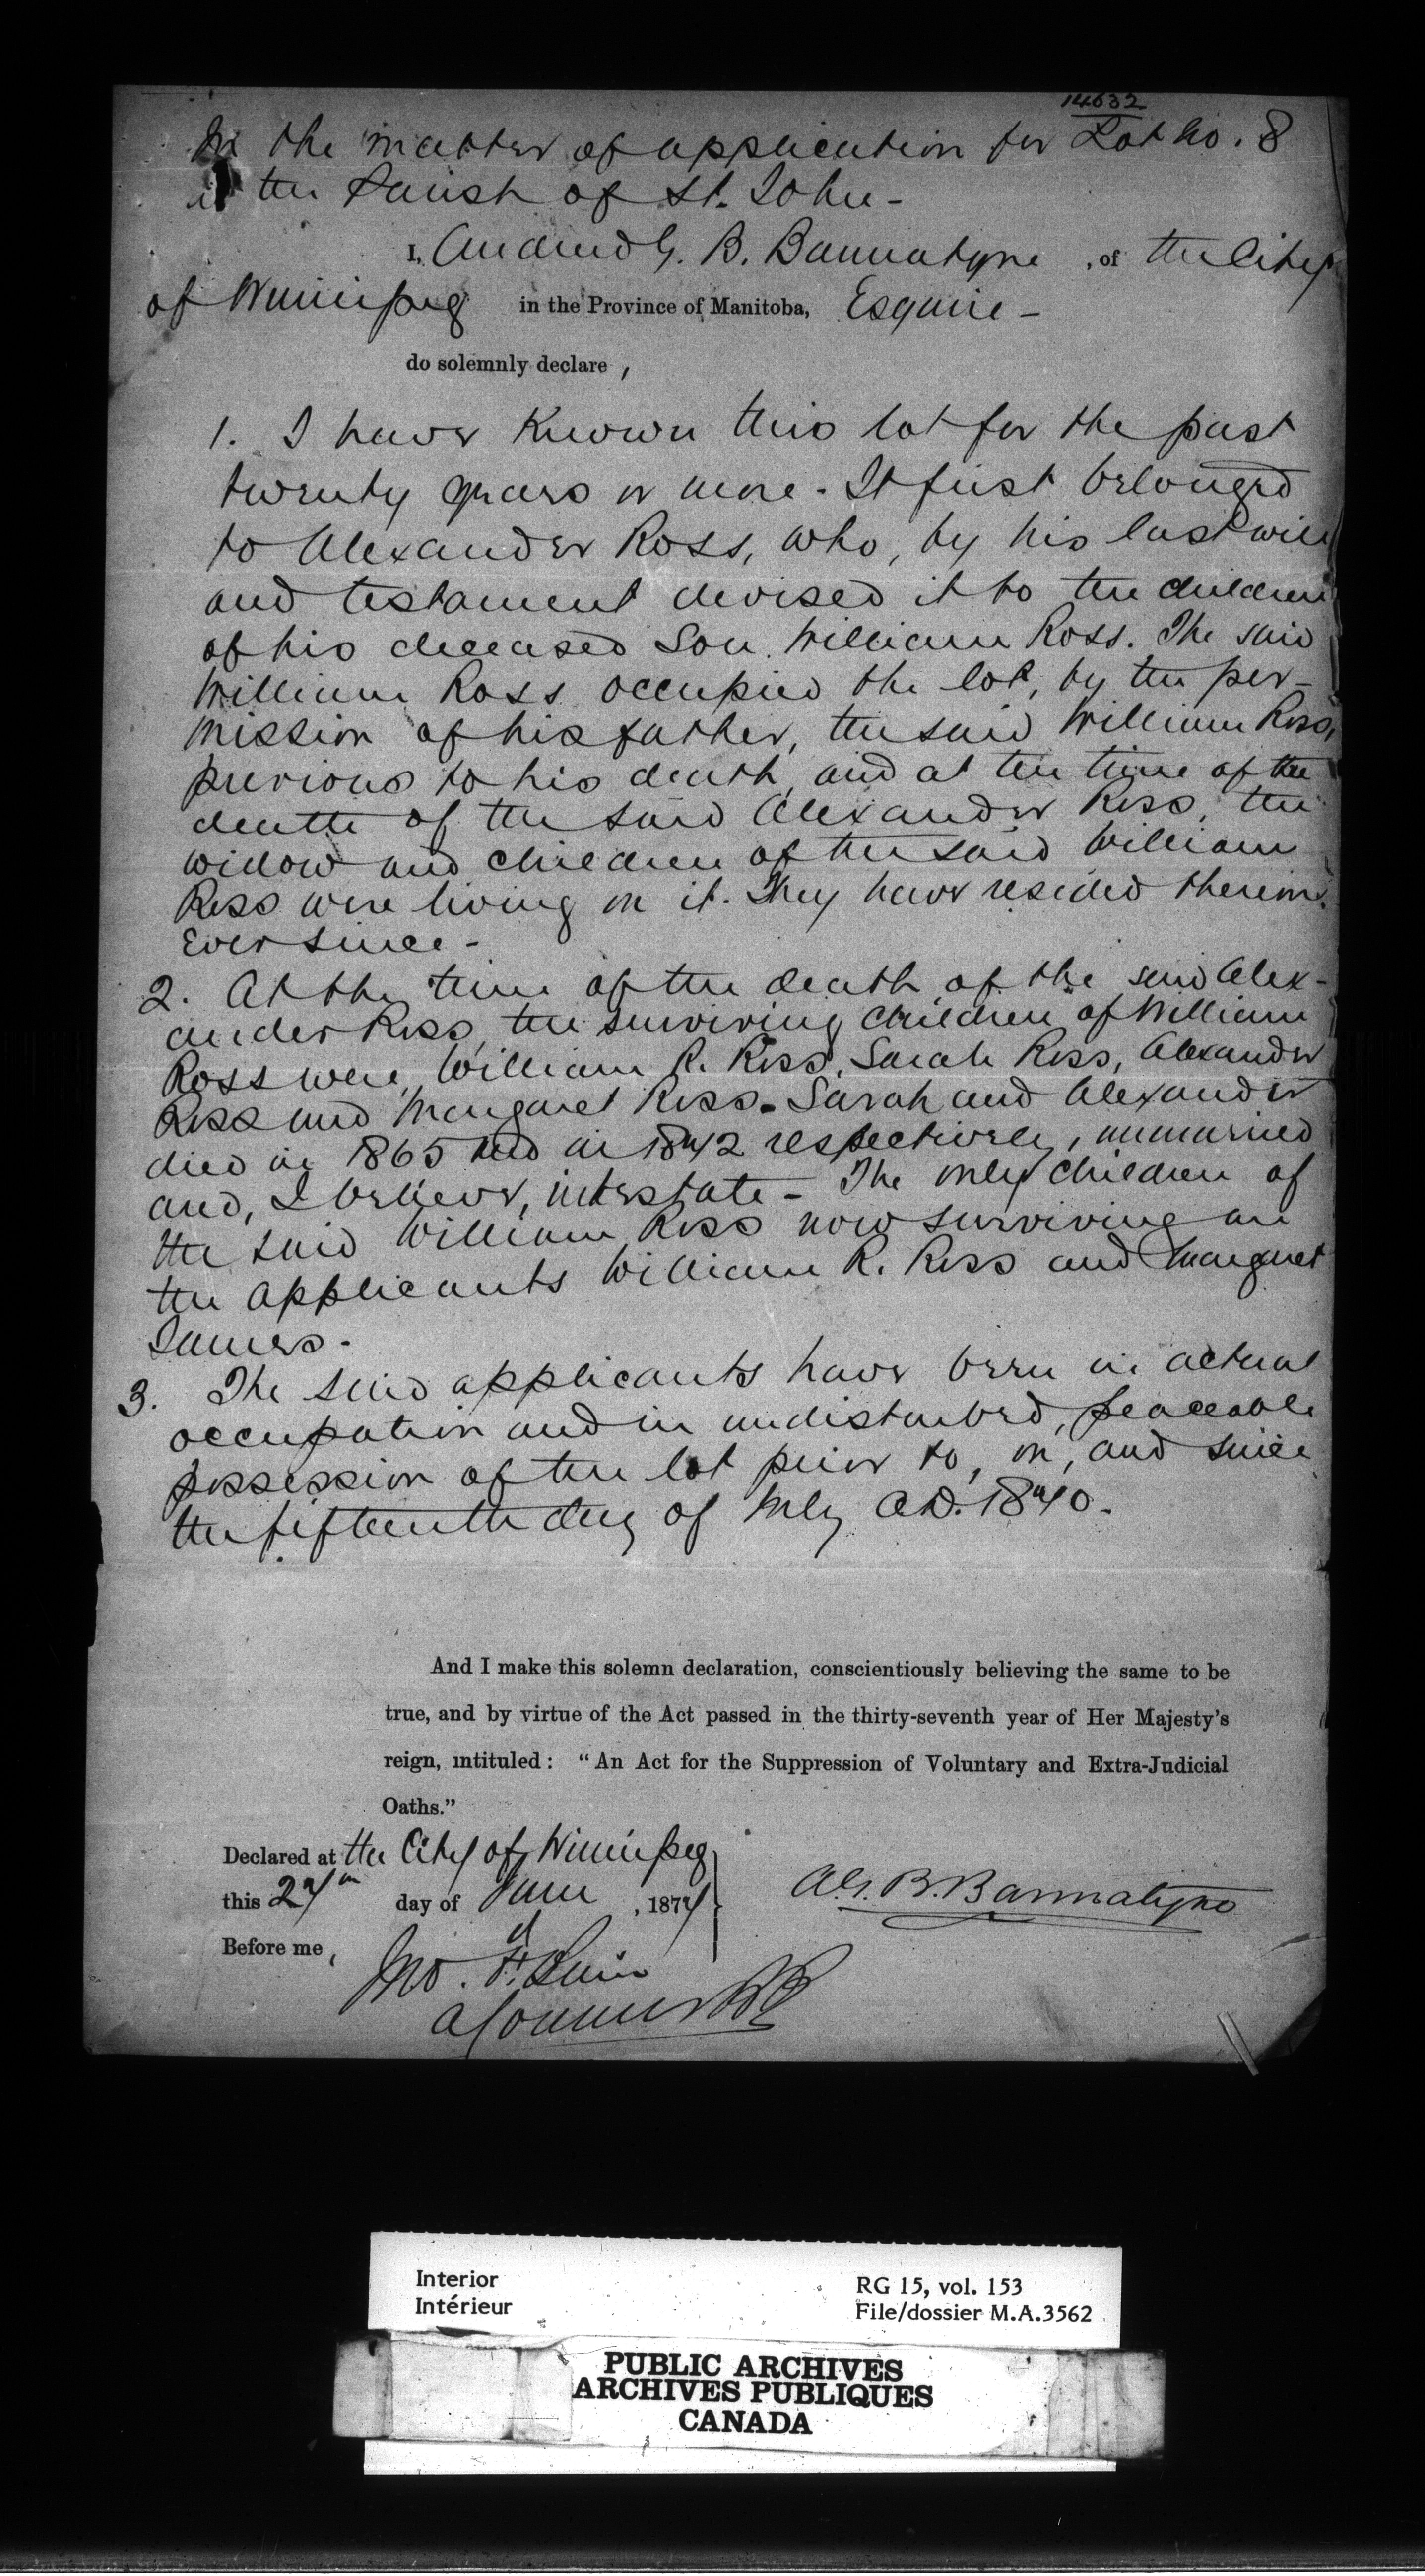 14632
In the matter of application for Lot No. 8
in the Parish of St. John -
I, Andrew G. B. Bannatyne, of the City
of Winnipeg in the Province of Manitoba, Esquire -
do solemnly declare,
1. I have known this lot for the past
twenty years or more. It first belonged
to Alexander Ross, who, by his last will
and testament devised it to the children
of his deceased Son William Ross. The said
William Ross occupied the lot, by the per-
mission of his father, the said William Ross,
previous to his death, and at the time of the
death of the said Alexander Ross, the
widow and children of the said William
Ross were living on it. They have resided thereon
ever since -
2. At the time of the death of the said Alex-
ander Ross, the surviving children of William
Ross were, William R. Ross, Sarah Ross, Alexander
Ross and Margaret Ross. Sarah and Alexander
died in 1865 and in 1872 respectively, unmarried
and, I believe, intestate - The only children of
the said William Ross now surviving are
the applicants William R. Ross and Margaret
James -
3. The said applicants have been in actual
occupation and in undisturbed, peaceable
possession of the lot prior to, on, and since
the fifteenth day of July A.D. 1870.
And I make this solemn declaration, conscientiously believing the same to be
true, and by virtue of the Act passed in the thirty-seventh year of Her Majesty's
reign, intituled: "An Act for the Suppression of Voluntary and Extra-Judicial
Oaths."
Declared at the City of Winnipeg
this 27th day of June, 1877
A. G. B. Bannatyne
Before me,
Jno. F.
A Commr
Interior
Intérieur
RG 15, vol. 153
File/dossier M.A.3562
PUBLIC ARCHIVES
ARCHIVES PUBLIQUES
CANADA